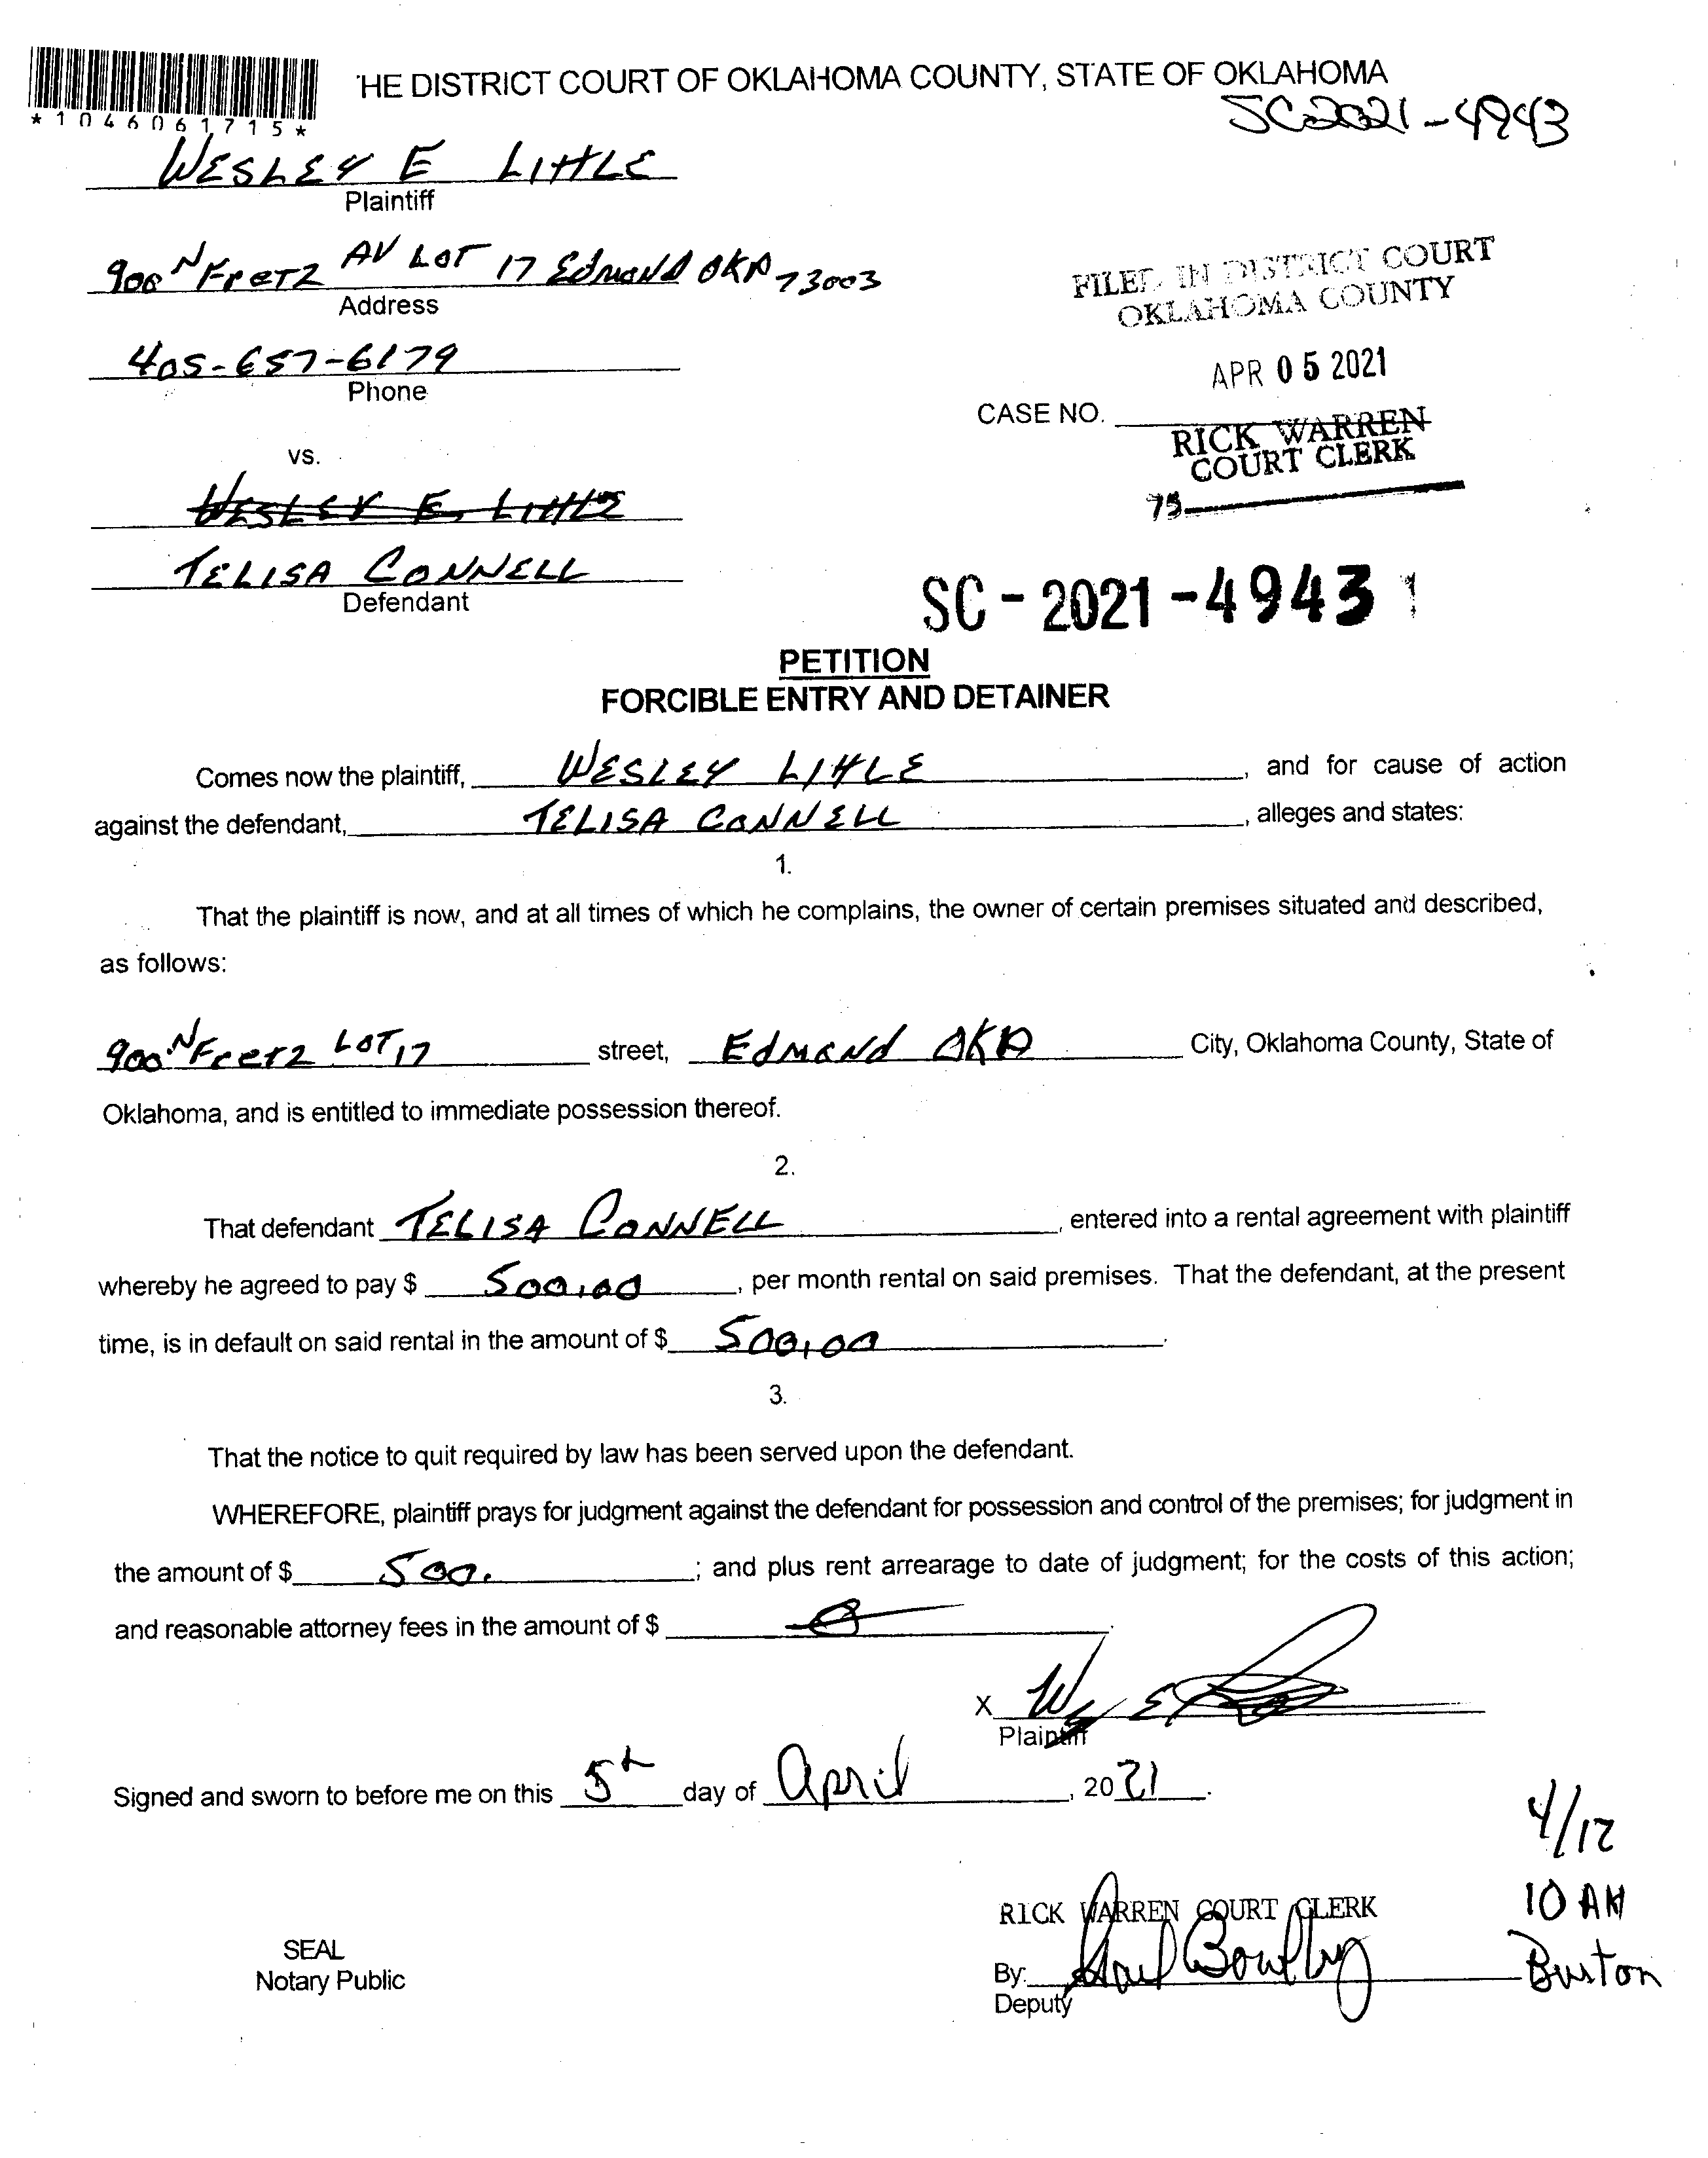 'HE DISTRICT COURT OF OKLAHOMA COUNTY, STATE OF OKLAHOMA
*1046061715*
SC2021-4943
WESLEY E LittLE
Plaintiff
900 N FrETZ AV LOT 17 Edmond OKA 73003
Address
FILED IN DISTRICT COURT
OKLAHOMA COUNTY
405-657-6179
Phone
APR 05 2021
CASE NO.
RICK WARREN
COURT CLERK
vs.
75
WESLEY E. LittLE
TELISA CONNELL
Defendant
SC-2021-4943
PETITION
FORCIBLE ENTRY AND DETAINER
Comes now the plaintiff, WESLEY LittLE, and for cause of action
against the defendant, TELISA CONNELL, alleges and states:
1.
That the plaintiff is now, and at all times of which he complains, the owner of certain premises situated and described,
as follows:
900 N FrETZ LOT 17 street, EdmoNd OKA City, Oklahoma County, State of
Oklahoma, and is entitled to immediate possession thereof.
2.
That defendant TELISA CONNELL, entered into a rental agreement with plaintiff
whereby he agreed to pay $ 500.00, per month rental on said premises. That the defendant, at the present
time, is in default on said rental in the amount of $ 500.00.
3.
That the notice to quit required by law has been served upon the defendant.
WHEREFORE, plaintiff prays for judgment against the defendant for possession and control of the premises; for judgment in
the amount of $ 500. ; and plus rent arrearage to date of judgment; for the costs of this action;
and reasonable attorney fees in the amount of $ .
X
Plaintiff
Signed and sworn to before me on this 5th day of April, 2021.
4/12
10 AM
Burton
RICK WARREN COURT CLERK
SEAL
Notary Public
By:
Deputy